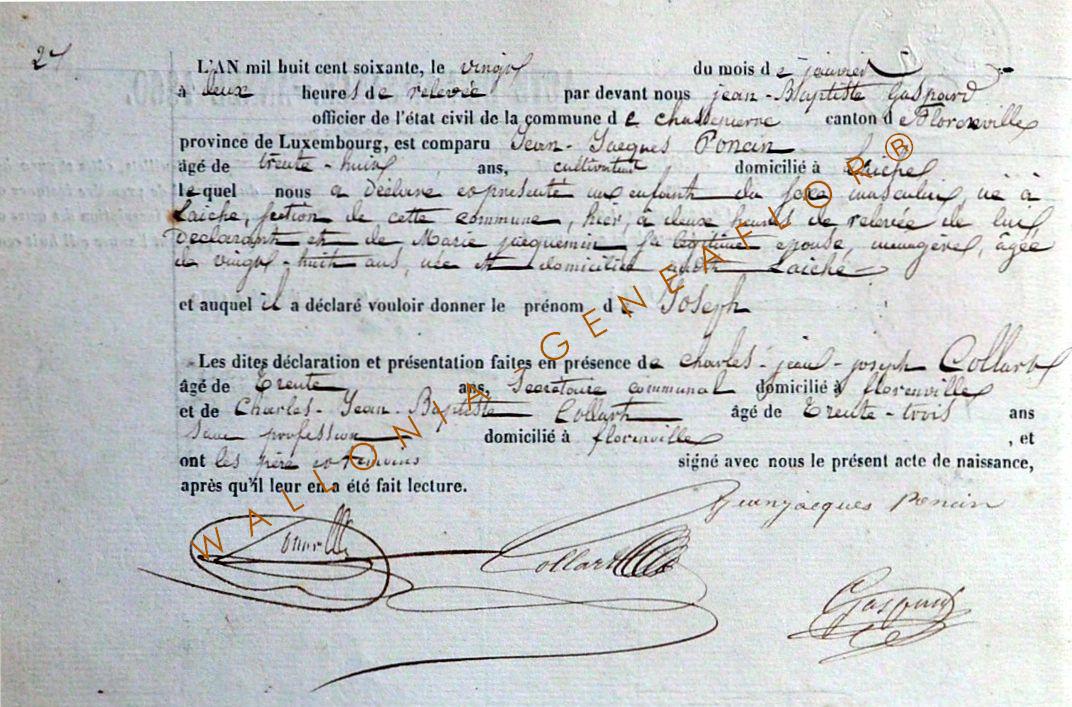 27
L'AN mil huit cent soixante, le vingt du mois de janvier
à deux heures de relevée par devant nous jean-Baptiste Gaspard
officier de l'état civil de la commune de chassepierre canton de Florenville
province de Luxembourg, est comparu Jean-Jacques Poncin
âgé de trente-huit ans, cultivateur domicilié à Laiche
lequel nous a Déclaré et présenté un enfant du sexe masculin, né à
Laiche, section de cette commune, hier, à deux heures de relevée de lui
Déclarant et de Marie jacquemin, sa légitime épouse, ménagère, âgée
de vingt-huit ans, née et domiciliée audit Laiche
et auquel il a déclaré vouloir donner le prénom de Joseph
Les dites déclaration et présentation faites en présence de charles-jean-joseph Collart
âgé de Trente ans, Secrétaire communal domicilié à florenville
et de Charles-Jean-Baptiste Collart âgé de Trente-trois ans
sans profession domicilié à florenville, et
ont les père et témoins signé avec nous le présent acte de naissance,
après qu'il leur en a été fait lecture.
Jeanjacques Poncin
Collart
Gaspard
WALLONIA GENEAFLOR®